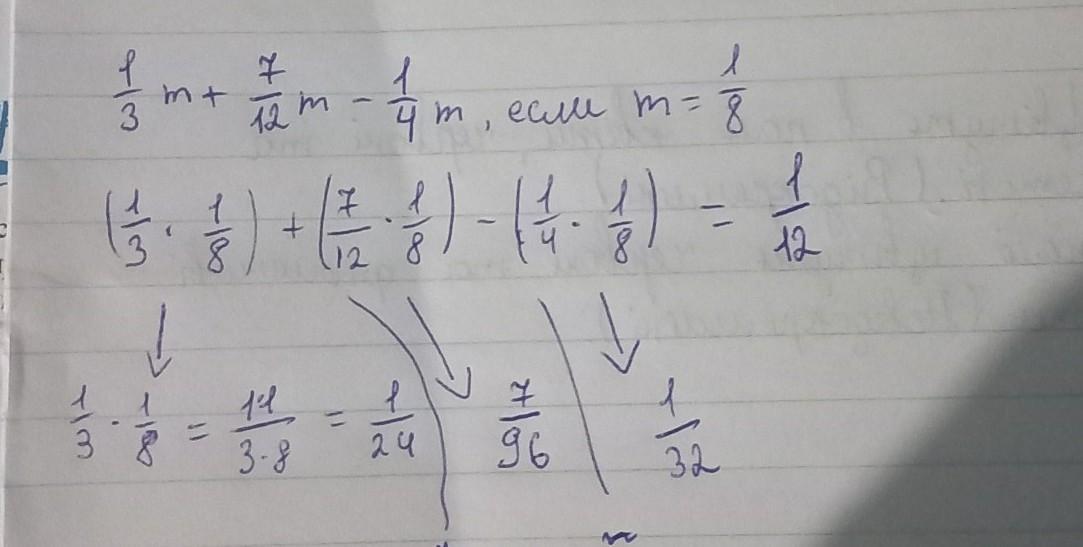 1/3 m + 7/12 m - 1/4 m, если m = 1/8
(1/3 · 1/8) + (7/12 · 1/8) - (1/4 · 1/8) = 1/12
1/3 · 1/8 = 1·1/3·8 = 1/24 7/96 1/32